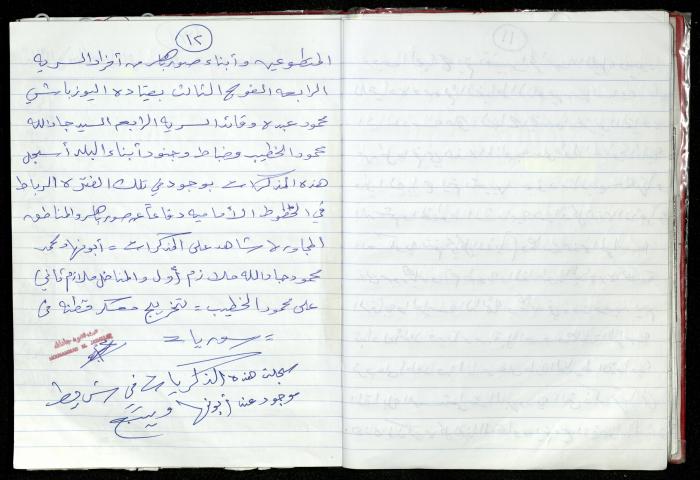 ١٢
المتطوعين وأبناء صور باهر من أفراد السريه
الرابعه الفوج الثالث بقيادة اليوزباشي
محمود عبده وقائد السريه الرابعه السيد جادالله
محمود الخطيب وضباط وجنود أبناء البلد أسجل
هذه المذكرات بوجودي تلك الفتره الرباط
في الخطوط الأماميه دفاعاً عن صور باهر والمناطق
المجاوره شاهد على المذكرات = أبو نهاد محمد
محمود جادالله ملازم أول والمناضل ملازم ثاني
على محمود الخطيب = تخريج معسكر قطنه في
= سوريا =
سجلت هذه الذكريات في شريط
موجود عند أبو نهاد ويتبع
١١